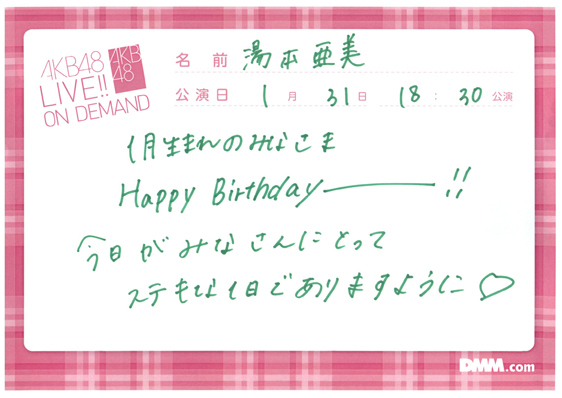 AKB48
LIVE!!
ON DEMAND
AKB
48
名前 湯本亜美
公演日 1月 31日 18:30公演
1月生まれのみなさま
Happy Birthday──!!
今日がみなさんにとって
ステキな1日でありますように♡
DMM.com